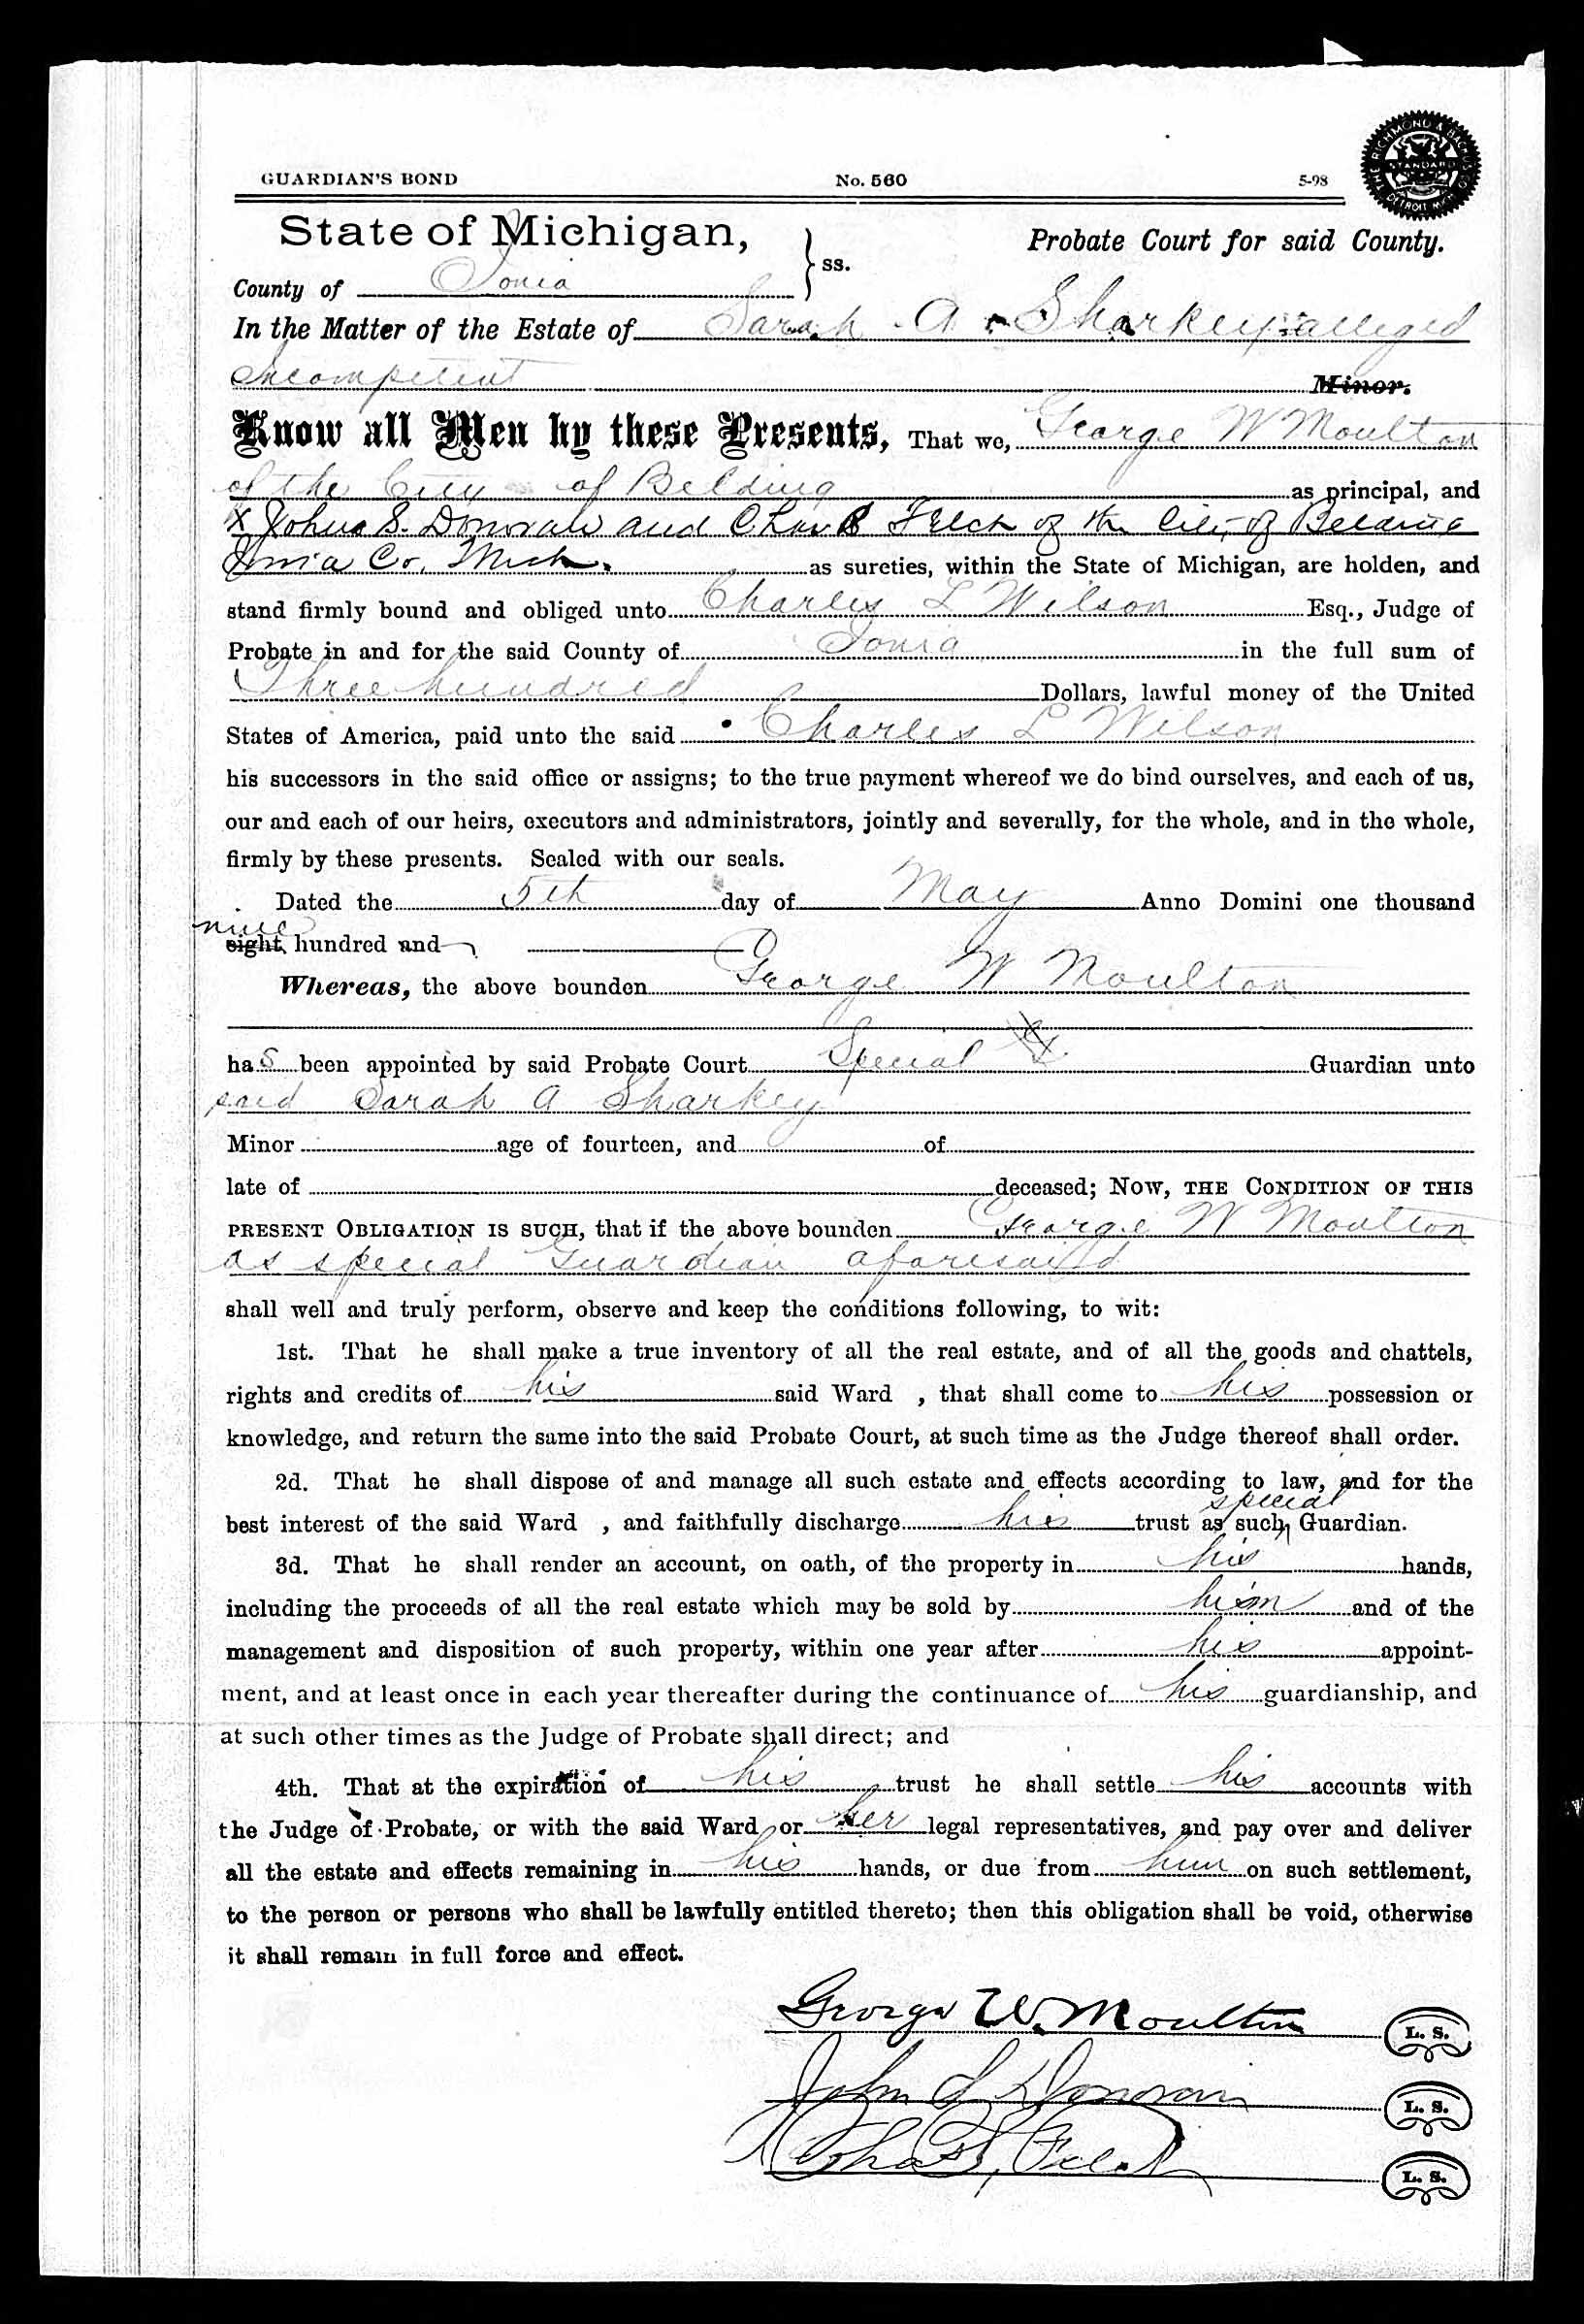 GUARDIAN'S BOND No. 560 5-98
THE RICHMOND & BACKUS CO. STANDARD DETROIT MICH.
State of Michigan,
ss. Probate Court for said County.
County of Ionia
In the Matter of the Estate of Sarah A. Sharkey alleged
Incompetent Minor.
Know all Men by these Presents, That we, George W Moulton
of the City of Belding as principal, and
x John S. Donovan and Chas B Felch of the City of Belding
Ionia Co. Mich. as sureties, within the State of Michigan, are holden, and
stand firmly bound and obliged unto Charles L Wilson Esq., Judge of
Probate in and for the said County of Ionia in the full sum of
Three hundred Dollars, lawful money of the United
States of America, paid unto the said Charles L Wilson
his successors in the said office or assigns; to the true payment whereof we do bind ourselves, and each of us,
our and each of our heirs, executors and administrators, jointly and severally, for the whole, and in the whole,
firmly by these presents. Sealed with our seals.
Dated the 5th day of May Anno Domini one thousand
nine
eight hundred and
Whereas, the above bounden George W Moulton
has been appointed by said Probate Court Special Guardian unto
said Sarah A Sharkey
Minor age of fourteen, and of
late of deceased; NOW, THE CONDITION OF THIS
PRESENT OBLIGATION IS SUCH, that if the above bounden George W Moulton
as special Guardian aforesaid
shall well and truly perform, observe and keep the conditions following, to wit:
1st. That he shall make a true inventory of all the real estate, and of all the goods and chattels,
rights and credits of his said Ward , that shall come to his possession or
knowledge, and return the same into the said Probate Court, at such time as the Judge thereof shall order.
2d. That he shall dispose of and manage all such estate and effects according to law, and for the
special
best interest of the said Ward , and faithfully discharge his trust as such Guardian.
3d. That he shall render an account, on oath, of the property in his hands,
including the proceeds of all the real estate which may be sold by him and of the
management and disposition of such property, within one year after his appoint-
ment, and at least once in each year thereafter during the continuance of his guardianship, and
at such other times as the Judge of Probate shall direct; and
4th. That at the expiration of his trust he shall settle his accounts with
the Judge of Probate, or with the said Ward or her legal representatives, and pay over and deliver
all the estate and effects remaining in his hands, or due from him on such settlement,
to the person or persons who shall be lawfully entitled thereto; then this obligation shall be void, otherwise
it shall remain in full force and effect.
George W. Moulton L. S.
John S Donovan L. S.
Chas B. Felch L. S.